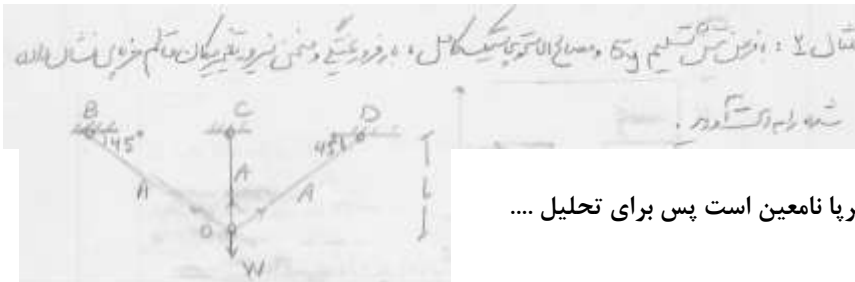 مثال ۲ : با فرض تنش تسلیم σy و مصالح الاستوپلاستیک کامل ، بار فروریختگی و منحنی نیرو تغییرمکان قائم خرپای نشان داده
شده را بدست آورید .
B C D
45° 45°
A A A L
O
W
رپا نامعین است پس برای تحلیل ....